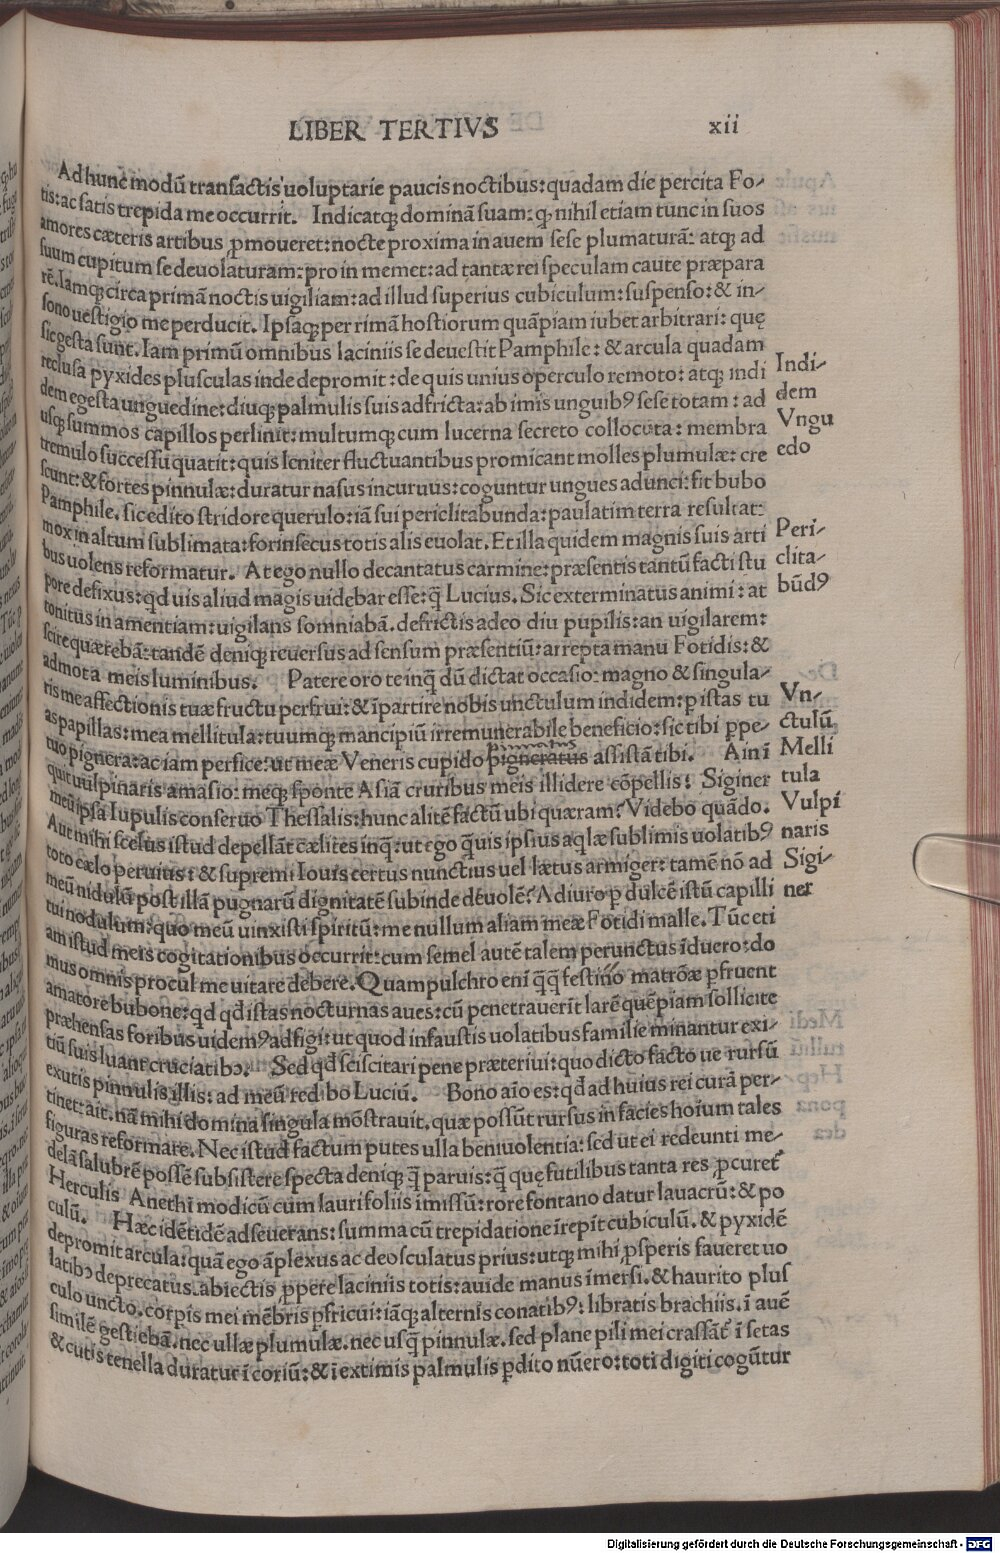 LIBER TERTIVS xii
Ad hunc modū transactis uoluptarie paucis noctibus: quadam die percita Fo-
tis: ac satis trepida me occurrit. Indicatq; dominā suam: q nihil etiam tunc in suos
amores cæteris artibus ꝓmoueret: nocte proxima in auem sese plumaturā: atq; ad
suum cupitum se deuolaturam: proin memet: ad tantæ rei speculam caute præpara
rē. Iamq; circa primā noctis uigiliam: ad illud superius cubiculum: suspenso: & in-
sono uestigio me perducit. Ipsaq; per rimā hostiorum quāpiam iubet arbitrari: quę
sic gesta sunt. Iam primū omnibus laciniis se deuestit Pamphile: & arcula quadam
reclusa pyxides plusculas inde depromit: de quis unius operculo remoto: atq; indi
dem egesta unguedine: diuq; palmulis suis adfricta: ab imis unguibꝰ sese totam: ad
usq; summos capillos perlinit: multumq; cum lucerna secreto collocuta: membra
tremulo successu quatit: quis leniter fluctuantibus promicant molles plumulæ: cre
scunt: & fortes pinnulæ: duratur nasus incuruus: coguntur ungues adunci: fit bubo
Pamphile. sic edito stridore querulo: iā sui periclitabunda: paulatim terra resultat:
mox in altum sublimata: forinsecus totis alis euolat. Et illa quidem magnis suis arti
bus uolens reformatur. At ego nullo decantatus carmine: præsentis tantū facti stu
pore defixus: qd uis aliud magis uidębar esse: q̄ Lucius. Sic exterminatus animi: at
tonitus in amentiam: uigilans somniabā. defrictis adeo diu pupilis: an uigilarem:
scire quærebā: tandē deniq; reuersus ad sensum præsentiū: arrepta manu Fotidis: &
admota meis luminibus. Patere oro te inq̄ dū dictat occasio: magno & singula-
ris me affectionis tuæ fructu perfrui: & īpartire nobis unctulum indidem: p istas tu
as papillas: mea mellitula: tuumq; mancipiū irremunerabile beneficio: sic tibi ppe-
tuo pignera: ac iam perfice: ut meæ Veneris cupido pigneratus assistā tibi. Ain ī
quit uulpinaris amasio: meq; sponte Asiā cruribus meis illidere cōpellis! Siginer
meū ipsa lupulis conseruo Thessalis: hunc alitē factū ubi quæram? Videbo quādo.
Aut mihi scelus istud depellāt cælites inq̄: ut ego q̄uis ipsius aqlæ sublimis uolatibꝰ
toto cælo peruius: & supremi Iouis certus nunctius uel lætus armiger: tamē nō ad
meū nidulū post illā pugnarū dignitatē subinde deuolē? Adiuro p dulcē istū capilli
tui nodulum: quo meū uinxisti spiritū: me nullum aliam meæ Fotidi malle. Tūc eti
am istud meis cogitationibus occurrit: cum semel autē talem perunctus īduero: do
mus omnis procul me uitare debere. Quam pulchro enī q̄q̄ festino matrōæ pfruent
amatore bubone: qd qd istas nocturnas aues: cū penetrauerīt larē quēpiam sollicite
præhensas foribus uidemꝰ adfigi: ut quod infaustis uolatibus familie minantur exi-
tiū suis luant cruciatibꝫ. Sed qd sciscitari pene præteriui: quo dicto facto ue rursū
exutis pinnulis illis: ad meū redibo Luciū. Bono aīo es: qd ad huius rei curā per-
tinet: ait. nā mihi domina singula mōstrauit. quæ possūt rursus in facies hoīum tales
figuras reformare. Nec istud factum putes ulla beniuolentia: sed ut ei redeunti me-
delā salubrē possē subsistere specta deniq; q̄ paruis: q̄ quę futilibus tanta res ꝓcuret
Herculis Anethi modicū cum lauri foliis īmissū: rore fontano datur lauacrū: & po
culū. Hæc idētidē adseuerans: summa cū trepidatione īrepit cubiculū. & pyxidē
depromit arcula: quā ego āplexus ac deosculatus prius: utq; mihi ꝓsperis faueret uo
latibꝫ deprecatus. abiectis ꝓpere laciniis totis: auide manus īmersi. & haurito plus
culo uncto. corpis mei mēbris pfricui: iāq; alternis conatibꝰ: libratis brachiis. ī auē
similē gestiebā. nec ullæ plumulæ. nec usq̄ pinnulæ. sed plane pili mei crassāt ī setas
& cutis tenella duratur ī coriū: & ī extimis palmulis pdito nūero: toti digiti cogūtur
Indi-
dem
Vngu
edo
Peri-
clita-
būdꝰ
Vn-
ctulū
Melli
tula
Vulpi
naris
Sigi-
ner
Digitalisierung gefördert durch die Deutsche Forschungsgemeinschaft - DFG